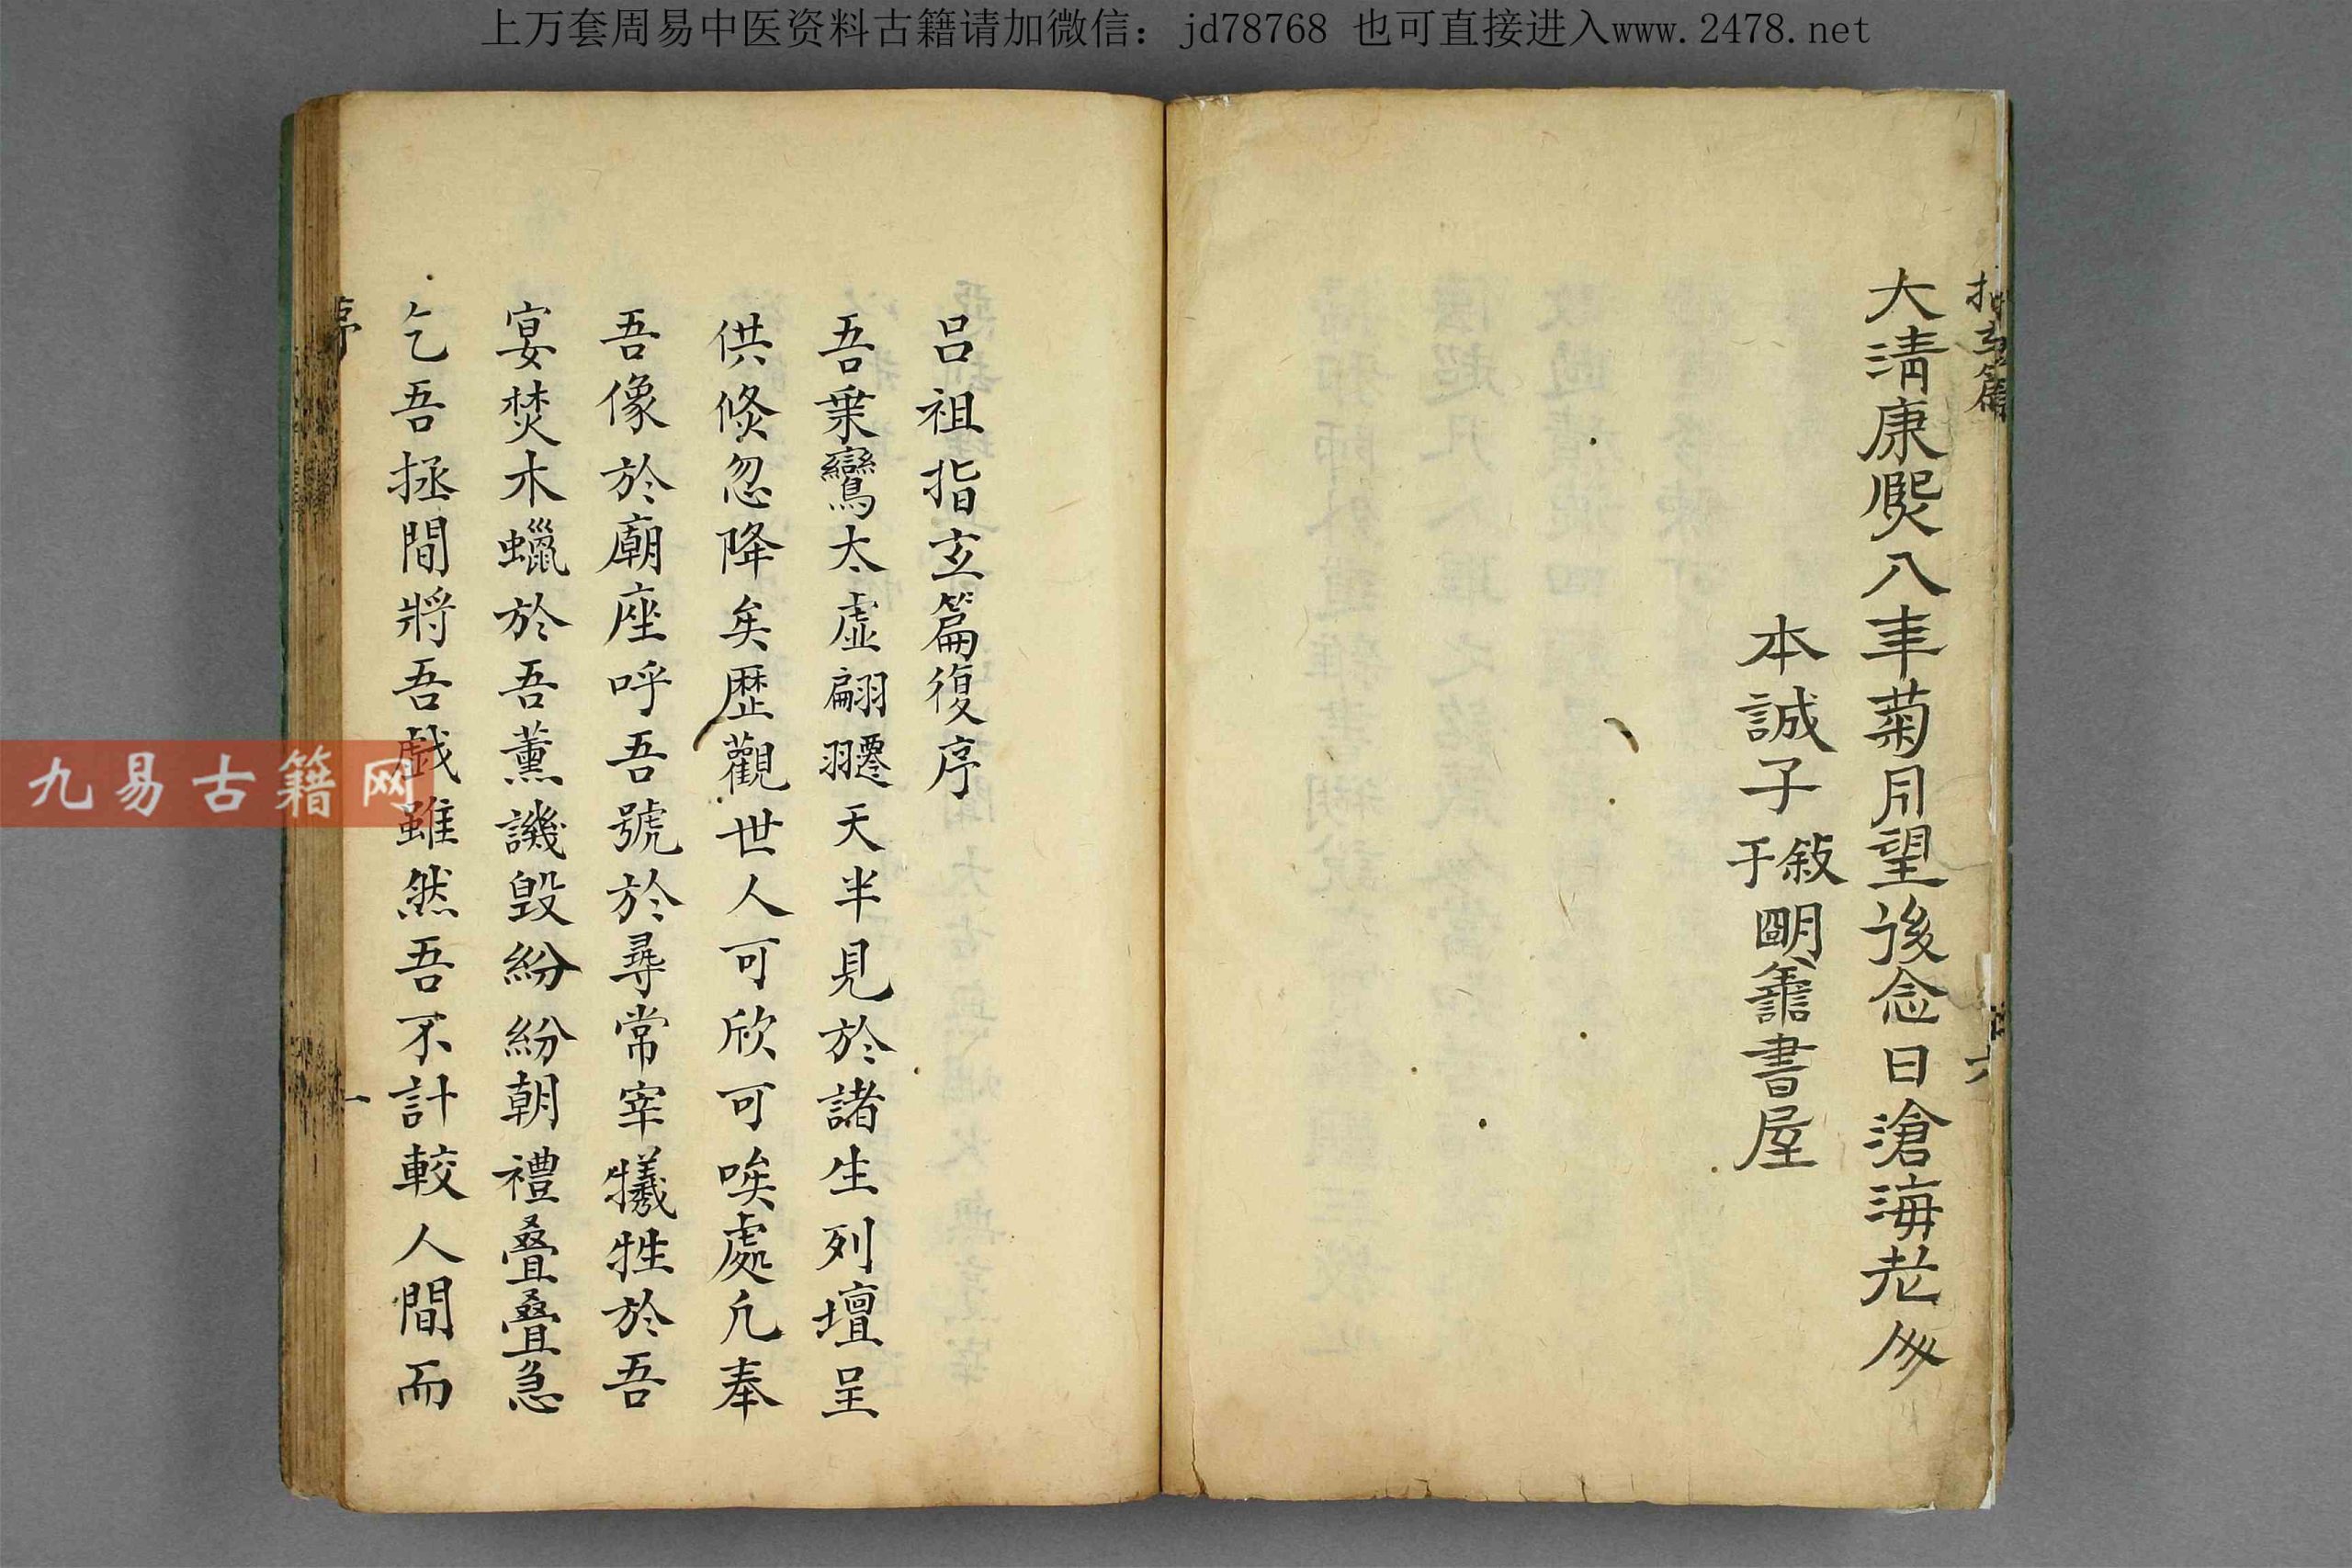 上万套周易中医资料古籍请加微信：jd78768 也可直接进入www.2478.net
指玄篇
六
大清康熙八年菊月望後念日滄海老人
本誠子敍于朙譱書屋
呂祖指玄篇復序
吾乗鸞太虛翩䙴天半見於諸生列壇呈
供倐忽降矣歷觀世人可欣可唉處凢奉
吾像於廟座呼吾號於尋常宰犧牲於吾
宴焚木蠟於吾薫譏毀紛紛朝禮疊疊急
乞吾拯間將吾戯雖然吾不計較人間而
序
一
九易古籍网